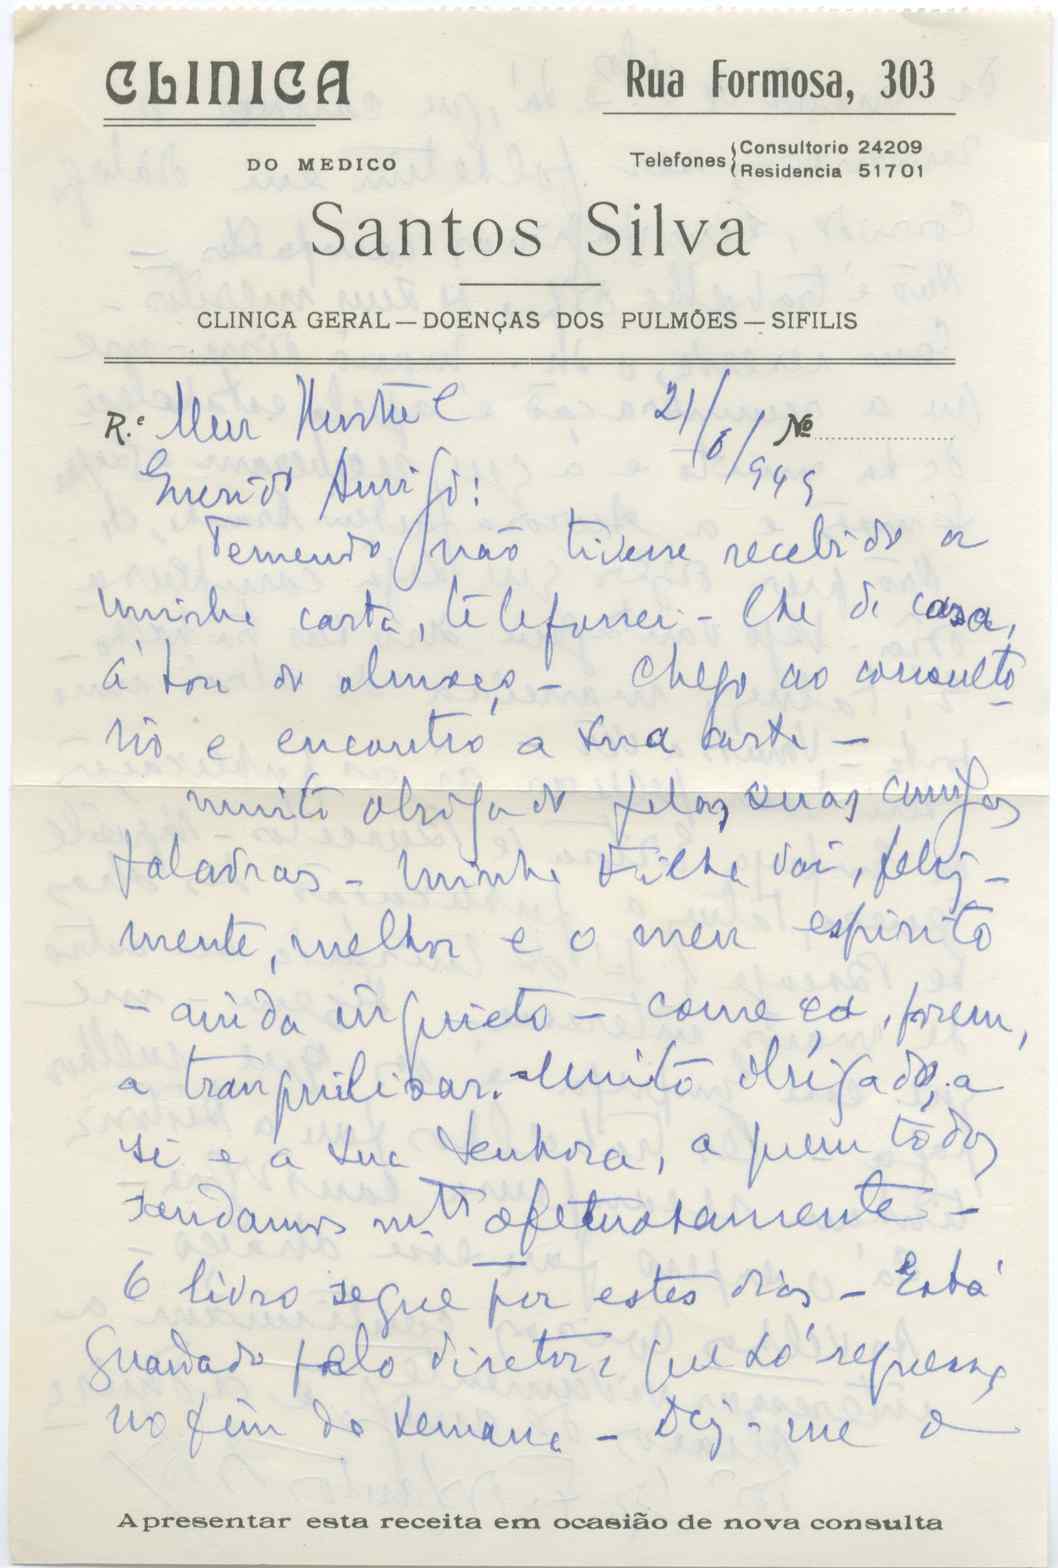 CLINICA
Rua Formosa, 303
DO MEDICO
Telefones { Consultorio 24209
Residencia 51701
Santos Silva
CLINICA GERAL — DOENÇAS DOS PULMÕES — SIFILIS
R.e Meu Ilustre 21/8/949 No
Querido Amigo:
Temendo não tivesse recebido a
minha carta, telefonei-lhe de casa,
á hora do almoço – Chego ao consultó-
rio e encontro a sua carta –
Muito obrigado pelas suas amigas
palavras – Minha Filha vai, feliz-
mente, melhor e o meu espirito
– ainda inquieto – começa, porem,
a tranquilisar. – Muito obrigado, a
si e a sua Senhora, a quem tôdos
saudamos m.tº afetuosamente –
O livro segue por estes dias – Está
guardado pelo diretor que só regressa
no fim da semana – Diz-me o
Apresentar esta receita em ocasião de nova consulta